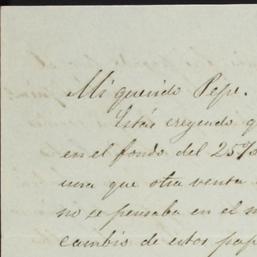 Mi querido Pepe.
Estás creyendo q
en el fondo del 25%
una que otra venta
no se pensaba en el m
cambio de estos pap